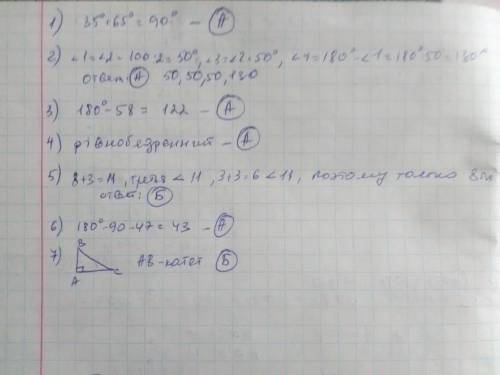 1) 35° + 65° = 90° - А
2) ∠1 = ∠2 = 100:2 = 50°, ∠3 = ∠2 = 50°, ∠4 = 180° - ∠1 = 180° - 50 = 130°
ответ: А 50, 50, 50, 130
3) 180° - 58 = 122 - А
4) рівнобедренний - А
5) 8+3=11, третя < 11, 3+3=6 < 11, поэтому только 8
ответ: Б
6) 180° - 90 - 47 = 43 - А
7) В А С АВ - катет Б